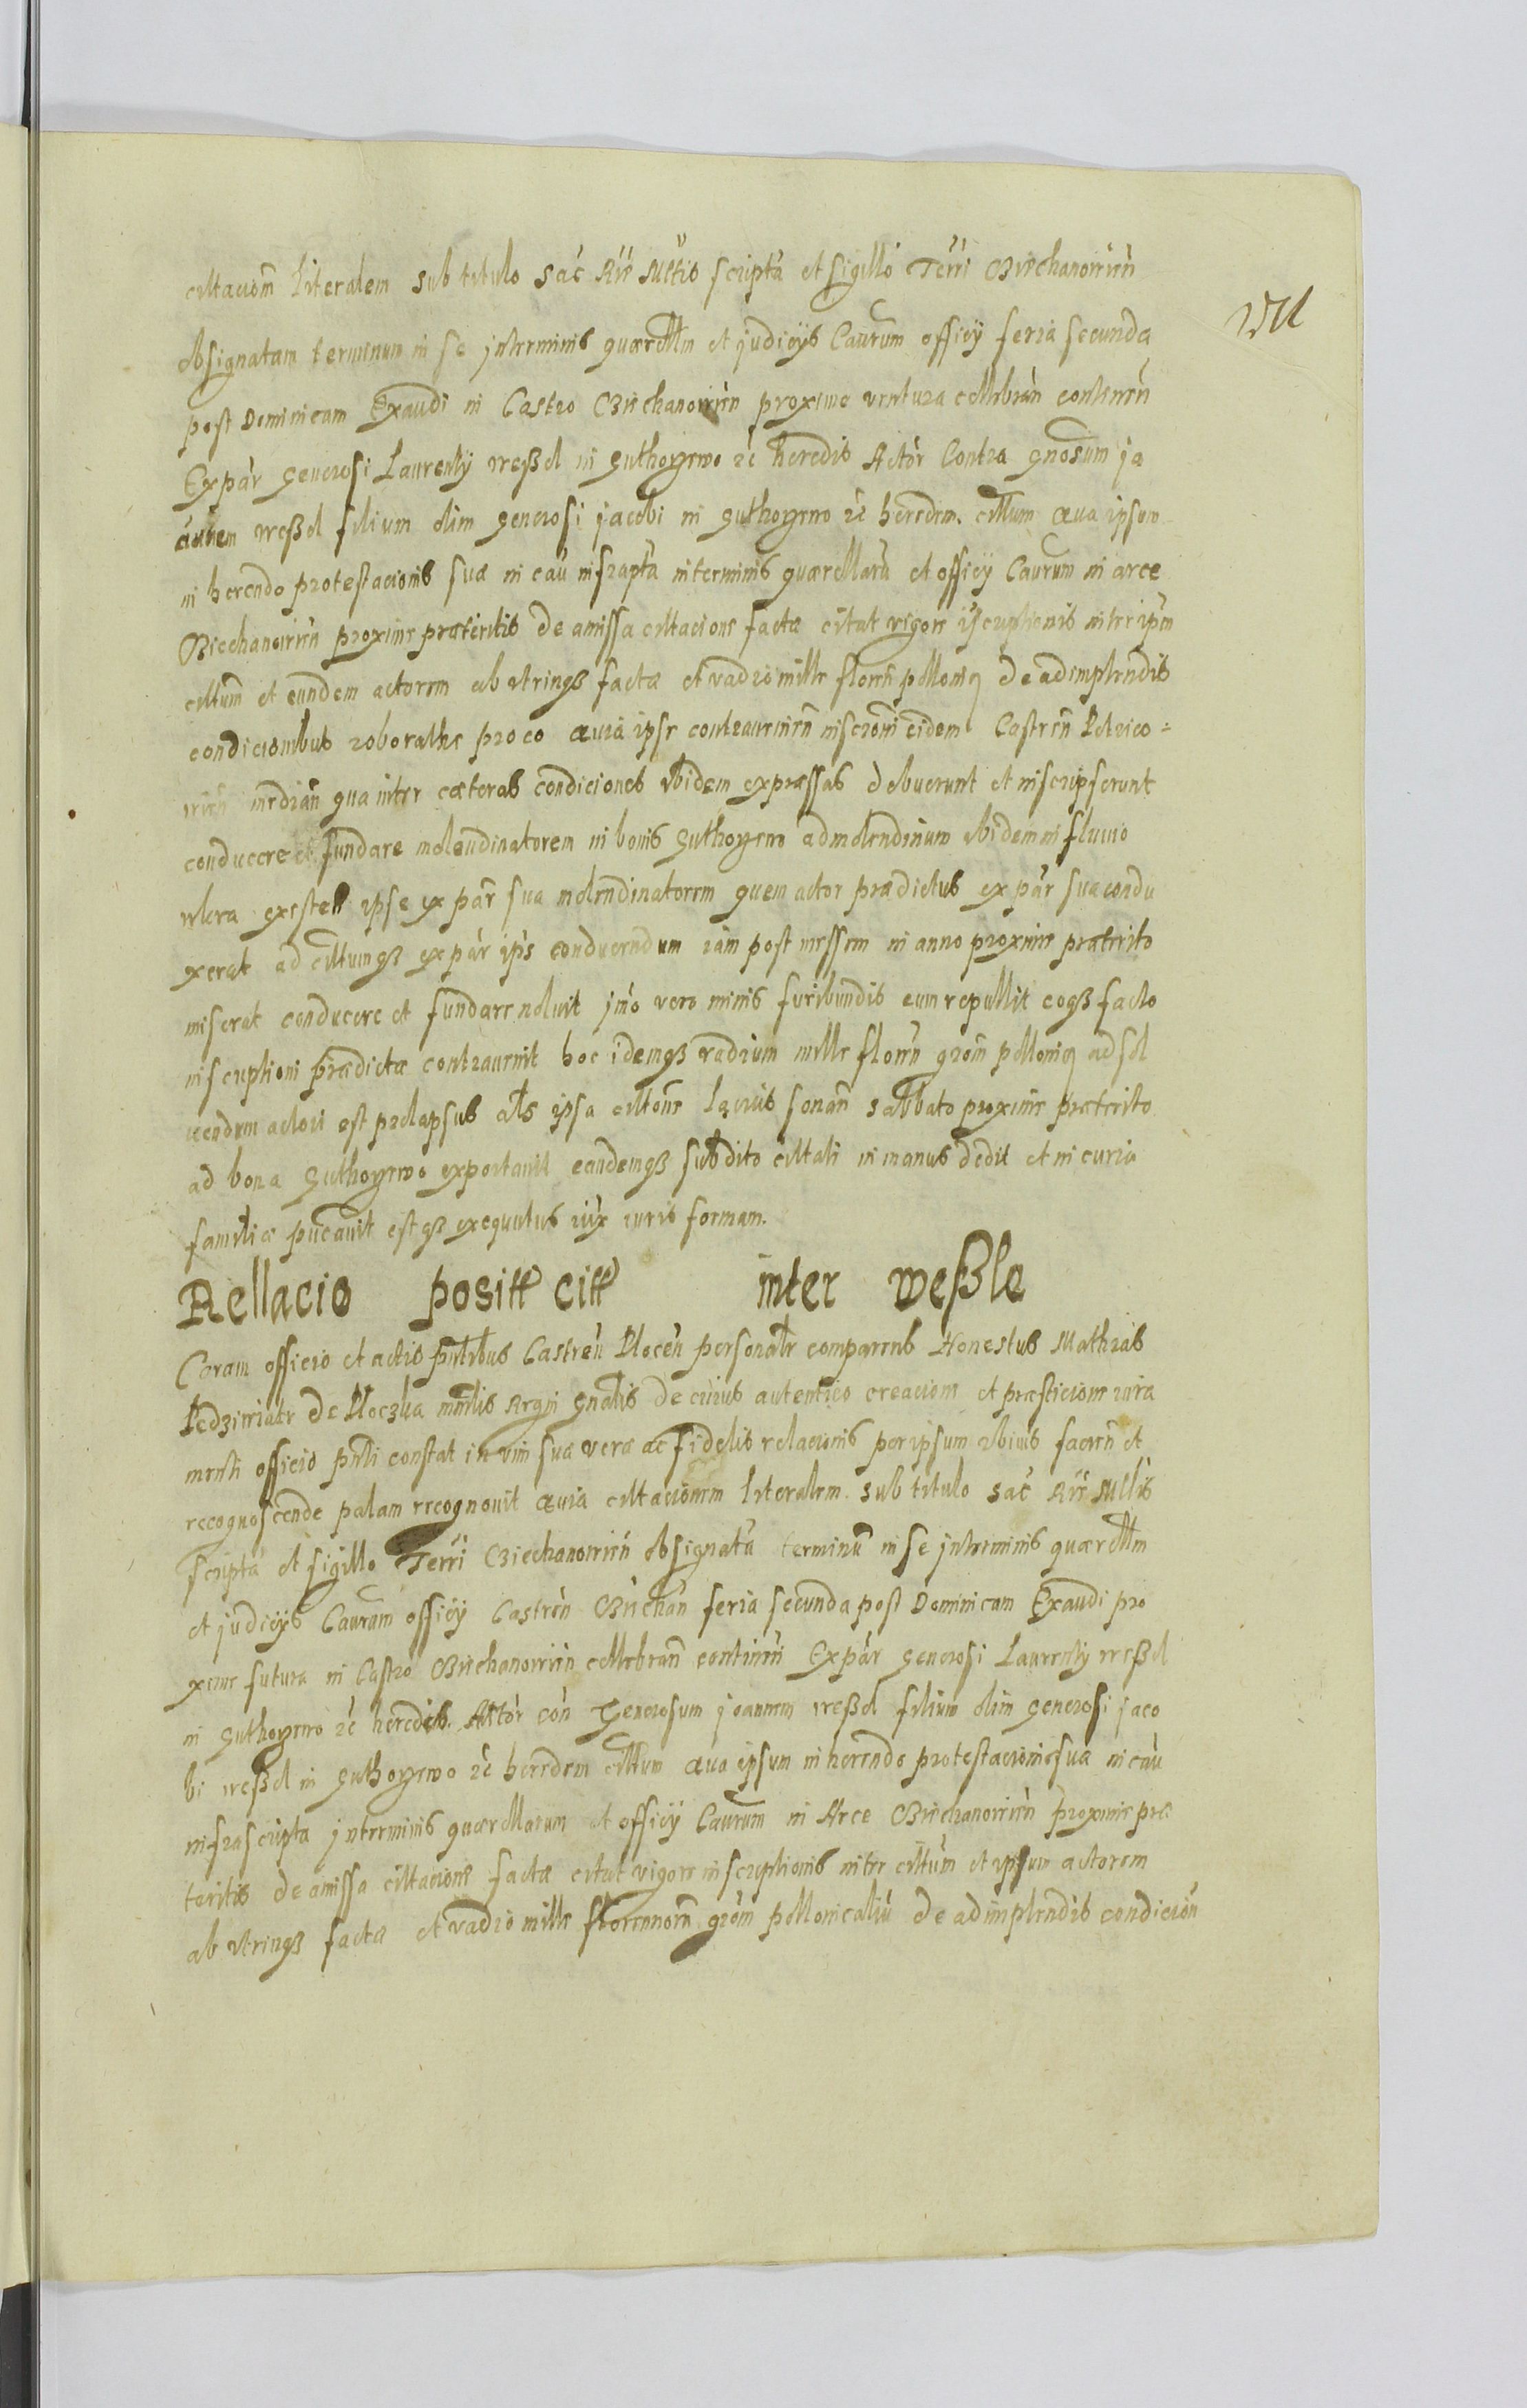 citacionm literalem sub titulo sac Rir Mttis scripta et sigillo Terri Biechanovien
obsignatam terminum in se interminis quærellm et judicys Caurum officy feria secunda
post Dominicam Exaudi in Castro Biechanovien proxime ventura cellebran continen
Ex par Generosi Laurenty weßel in Guthoyewo rc heredis Actor Contra gnosum ja
weßel filium olim generosi jacobi in guthoyewo rc heredem. cittum qua ipsum
in herendo protestacionis suæ in cau infrapta interminis quærellaru et officy Caurum in arce
Biechanovien proxime præteritis de amissa citacione factæ citat vigore iscriptionis inter ipm
cittum et eundem actorem ab utrinqȝ factæ et vadio mille floren pollonicq de adimplendis
condicionibus roboratæ pro eo quia ipse contraveniēn inscrōni eidem Castren
median qua inter cæteras condiciones ibidem expressas debuerunt et inscripserunt
conducere et fundare molendinatorem in bonis guthoyewo ad molendinum ibidem in fluvio
wkra ipse ex par sua molendinatorem quem actor prædictus ex par sua condu
xerat ad cittumqȝ ex par ips conducendum iam post messem in anno proxime præterito
miserat conducere et fundare noluit jmo vero minis furibundis eum repullit eoqȝ facto
inscriptioni prædictæ contravenit hoc idemqȝ vadium mille floren grom pollonicq ad sol
vendum actori est prolapsus als ipsa citone lacius sonan sabbato proxime præterito
ad bona Guthoyewo exportavit eandemqȝ subdito cittati in manus dedit et in curia
familiæ pucavit estqȝ exequutus iux iuris formam.
Rellacio positt citt inter weßle
Coram officio et actis pntibus Castren Plocen personalr comparens Honestus Mathias
de Ploczka mnlis Regni gnalis de cuius autentico creacione et præsticione iura
menti officio pnti constat in vim suæ veræ ac fidelis relacionis per ipsum ibius facien et
recognoscende palam recognovit quia citacionem literalem sub titulo sac Rir Mttis
scripta et sigillo Terri Biechanovien obsignata terminu in se interminis quærellm
et judicys Caurum officy Castren Biechan feria secunda post Dominicam Exaudi pro
xime futura in Castro Biechanovien cellebran continen Ex par Generosi Laurenty weßel
in guthoyewo rc heredis. Actor con Generosum joannem weßel filium olim generosi jaco
bi weßel in guthoyewo rc heredem cittum qua ipsum in herendo protestacionis suæ in cau
infrascripta interminis quærellarum et officy Caurum in Arce Biechanovien proxime præ
teritis de amissa citacione factæ citat vigore inscriptionis inter cittum et ipsum actorem
ab utrinqȝ factæ et vadio mille florennorn grom pollonicaliu de adimplendis condicion